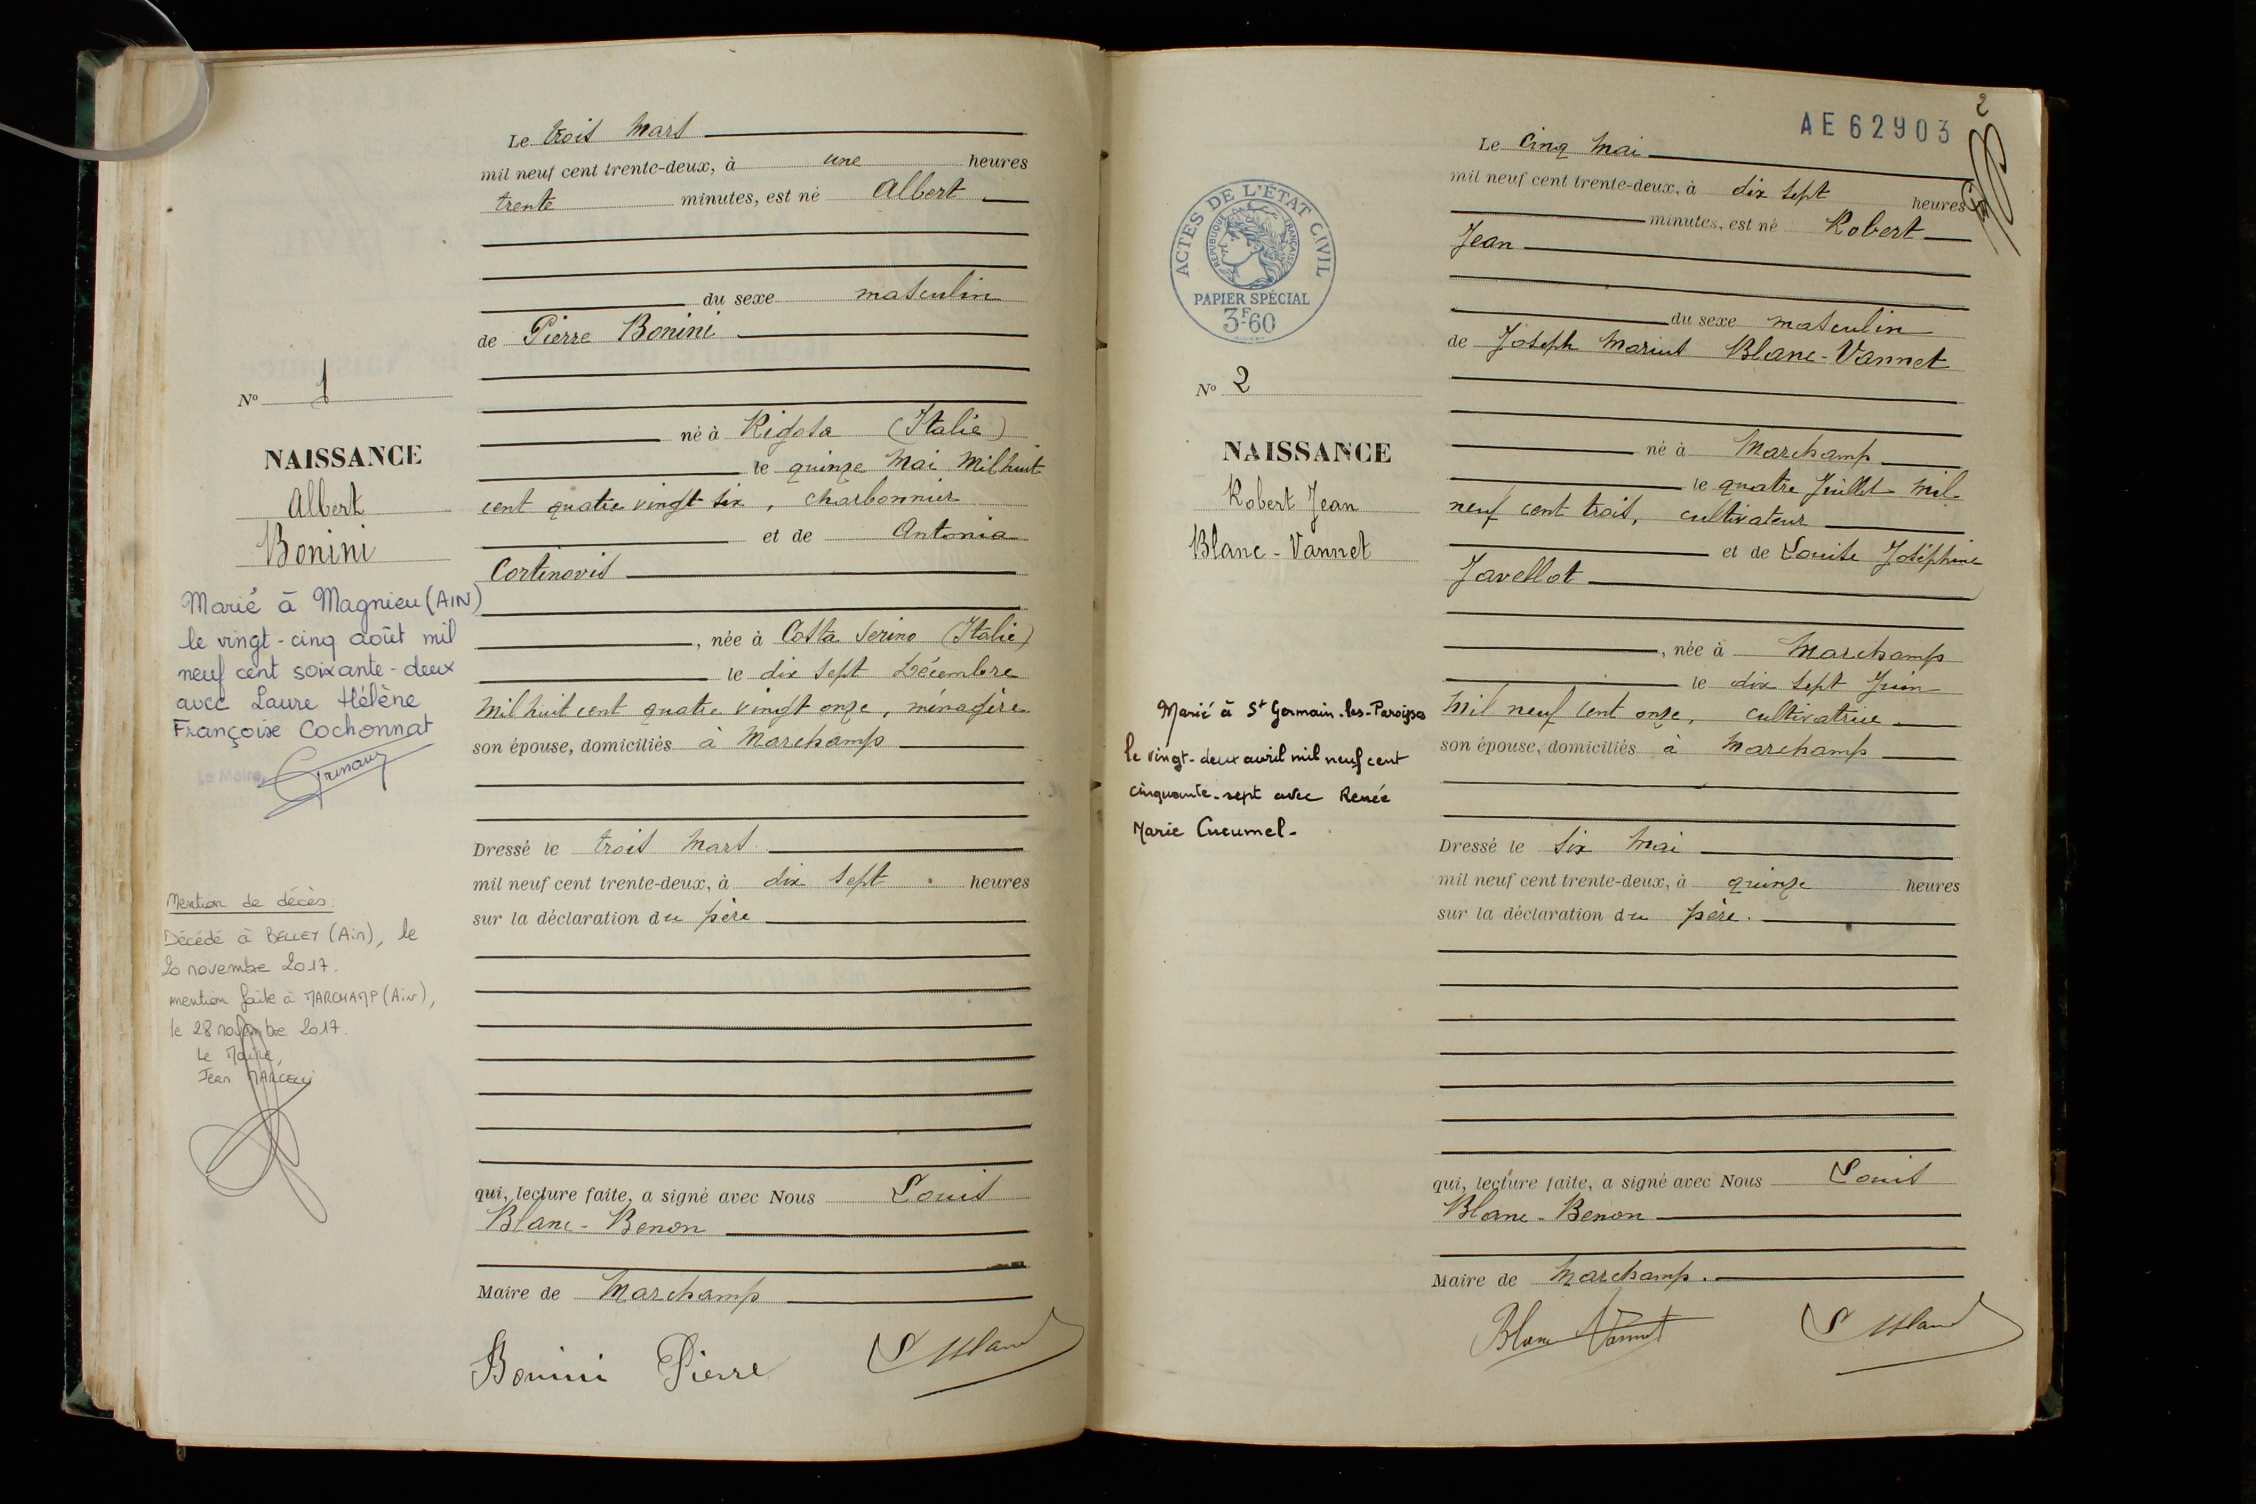 Le trois Mars
mil neuf cent trente-deux, à une heures
trente minutes, est né Albert
du sexe masculin
de Pierre Bonini
né à Rigosa (Italie)
le quinze Mai Mil huit
cent quatre vingt six, charbonnier
et de Antonia
Cortinovis
, née à Costa Serino (Italie)
le dix sept Décembre
Mil huit cent quatre vingt onze, ménagère
son épouse, domiciliés à Marchamp
Dressé le trois Mars
mil neuf cent trente-deux, à dix sept heures
sur la déclaration du père
qui, lecture faite, a signé avec Nous Louis
Blanc-Benon
Maire de Marchamp
Bonini Pierre
No 1
NAISSANCE
Albert
Bonini
Marié à Magnieu (AIN)
le vingt-cinq août mil
neuf cent soixante-deux
avec Laure Hélène
Françoise Cochonnat
Le Maire,
Mention de décès:
Décédé à BELLEY (Ain), le
20 novembre 2017.
mention faite à MARCHAMP (Ain),
le 28 novembre 2017.
Le Maire,
Jean MARCELLI
2
AE 62903
Le Cinq Mai
mil neuf cent trente-deux, à dix sept heures
minutes, est né Robert
Jean
du sexe masculin
de Joseph Marius Blanc-Vannet
né à Marchamp
le quatre Juillet Mil
neuf cent trois, cultivateur
et de Louise Joséphine
Javellot
, née à Marchamp
le dix sept Juin
Mil neuf cent onze, cultivatrice
son épouse, domiciliés à Marchamp
Dressé le six Mai
mil neuf cent trente-deux, à quinze heures
sur la déclaration du père.
qui, lecture faite, a signé avec Nous Louis
Blanc-Benon
Maire de Marchamp.
Blanc Vannet
ACTES DE L'ÉTAT CIVIL
RÉPUBLIQUE FRANÇAISE
PAPIER SPÉCIAL
3F60
No 2
NAISSANCE
Robert Jean
Blanc-Vannet
Marié à St Germain-les-Paroisses
le vingt-deux avril mil neuf cent
cinquante-sept avec Renée
Marie Cueumel-